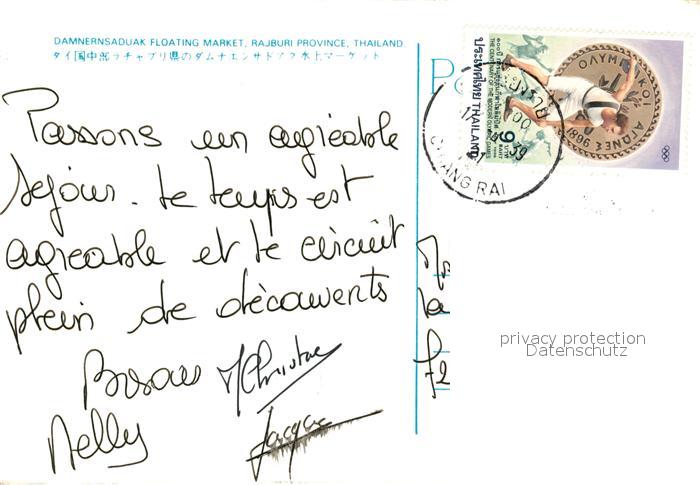 DAMNERNSADUAK FLOATING MARKET, RAJBURI PROVINCE, THAILAND.
タイ国中部ラチャブリ県のダムナエンサドアク水上マーケット
Passons un agréable
séjour. Le temps est
agréable et le circuit
plein de découverts
Bisous M Christine
Nelly Jacques
ประเทศไทย THAILAND
THE CENTENARY OF THE MODERN OLYMPIC GAMES
9 บาท BAHT
ΟΛΥΜΠΙΑΚΟΙ ΑΓΩΝΕΣ 1896
CHIANG RAI
privacy protection
Datenschutz